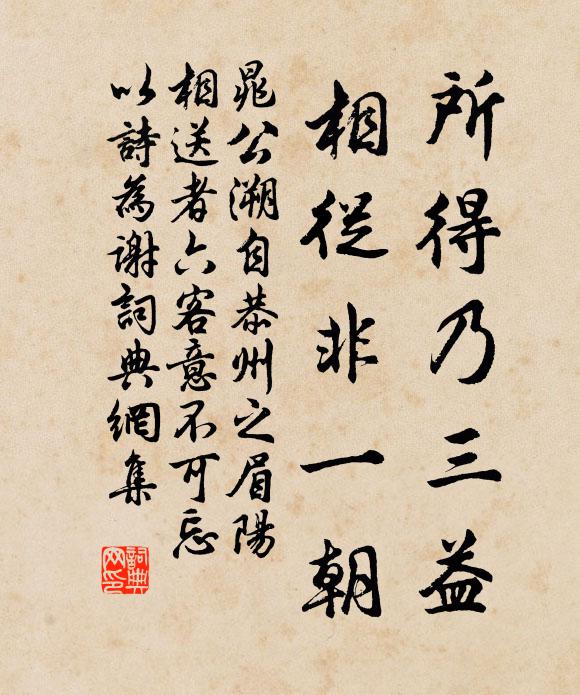 所得乃三益
相從非一朝
晁公溯自恭州之眉陽
相送者六客意不可忘
以詩為謝詞典網集
詞典
网印